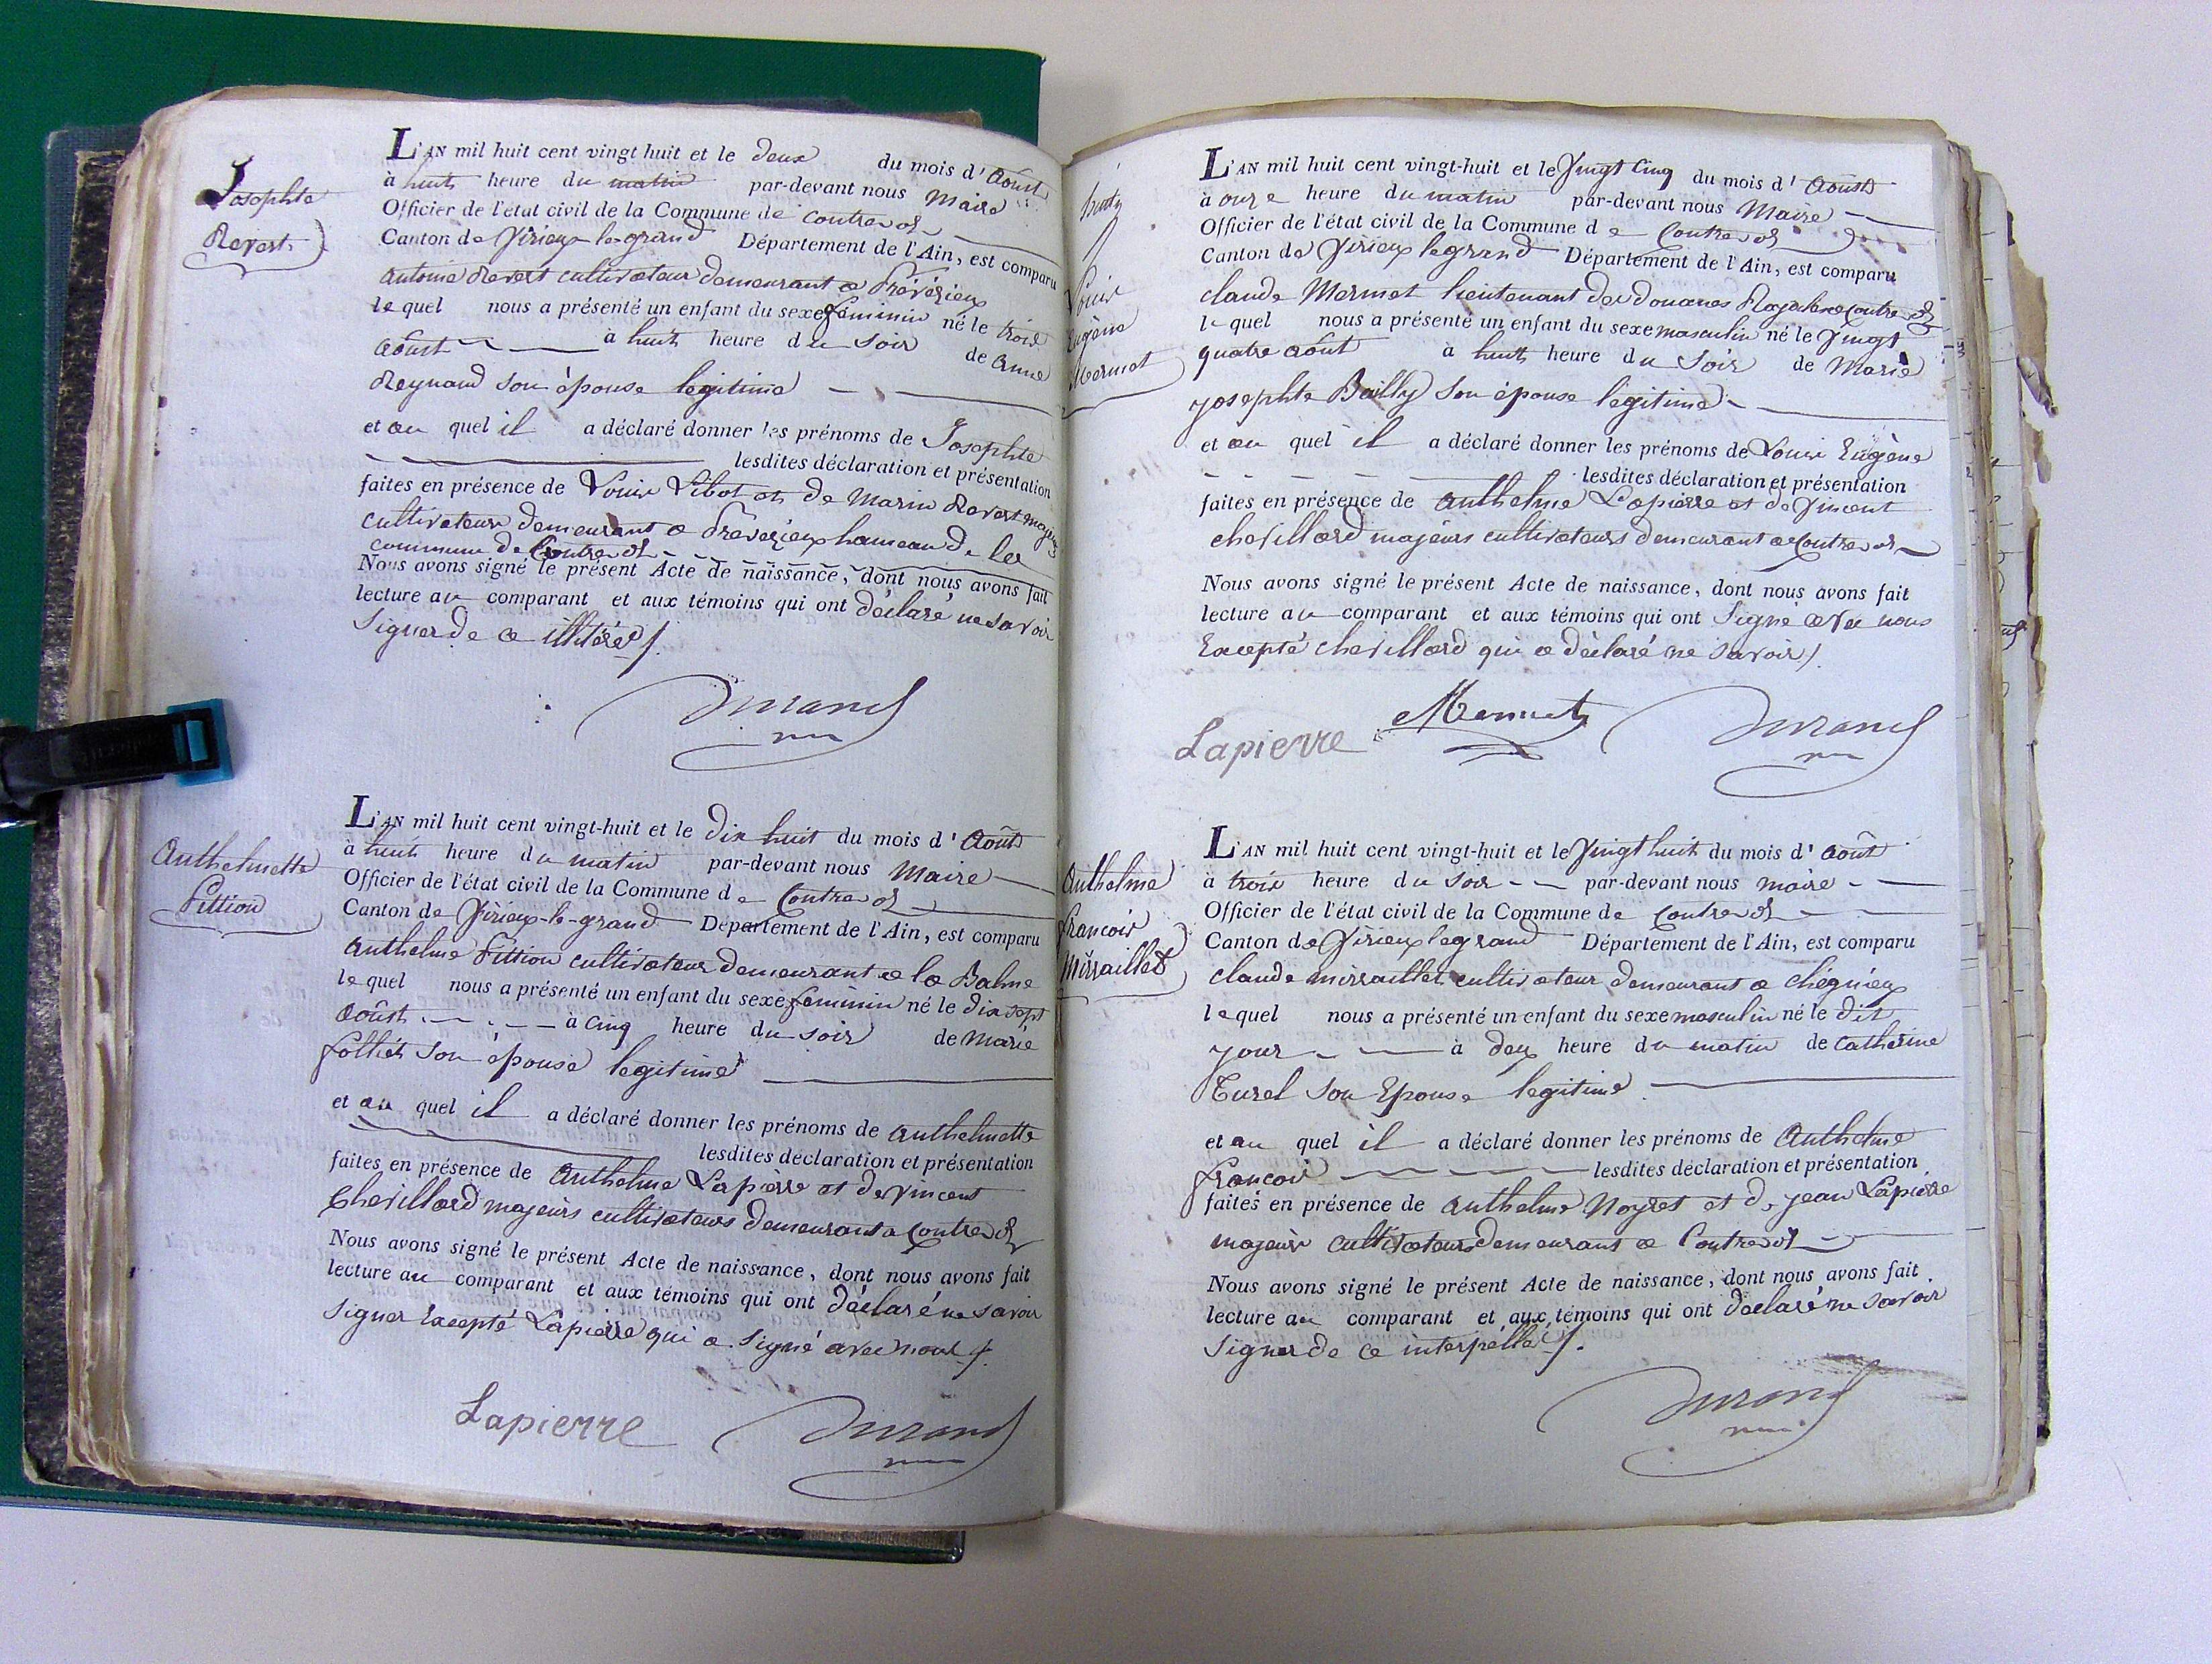 Josephte
Revert
L'AN mil huit cent vingt huit et le deux du mois d'Août
à huit heure du matin par-devant nous Maire
Officier de l'état civil de la Commune de Contrevoz
Canton de Virieux le grand Département de l'Ain, est comparu
antoine Revert cultivateur demeurant a Préveyzieux
le quel nous a présenté un enfant du sexe féminin né le trois
août à huit heure du soir de anne
Reynaud son épouse legitime
et au quel il a déclaré donner les prénoms de Josephte
lesdites déclaration et présentation
faites en présence de Louis et de Marin Revert majeurs
cultivateurs demeurant a hameau de la
commune de Contrevoz
Nous avons signé le présent Acte de naissance, dont nous avons fait
lecture au comparant et aux témoins qui ont déclaré ne savoir
signer de ce
Durand
Anthelmette
Pittion
L'AN mil huit cent vingt-huit et le dix huit du mois d'Août
à huit heure du matin par-devant nous Maire
Officier de l'état civil de la Commune de Contrevoz
Canton de Virieux-le-grand Département de l'Ain, est comparu
anthelme Pittion cultivateur demeurant a la Balme
le quel nous a présenté un enfant du sexe féminin né le dix sept
août à cinq heure du soir de Marie
folliet son épouse legitime
et au quel il a déclaré donner les prénoms de anthelmette
lesdites déclaration et présentation
faites en présence de anthelme Lapierre et de Vincent
Chevillard majeurs cultivateurs demeurant a Contrevoz
Nous avons signé le présent Acte de naissance, dont nous avons fait
lecture au comparant et aux témoins qui ont déclaré ne savoir
signer Excepté Lapierre qui a signé avec nous
Lapierre Durand
Louis
Eugène
Mermet
L'AN mil huit cent vingt-huit et le Vingt Cinq du mois d'Août
à onze heure du matin par-devant nous Maire
Officier de l'état civil de la Commune de Contrevoz
Canton de Virieux le grand Département de l'Ain, est comparu
claude Mermet lieutenant des douanes Royales a Contrevoz
le quel nous a présenté un enfant du sexe masculin né le Vingt
quatre août à huit heure du soir de Marie
josephte Bailly son épouse légitime
et au quel il a déclaré donner les prénoms de Louis Eugène
lesdites déclaration et présentation
faites en présence de anthelme Lapierre et de Vincent
chevillard majeurs cultivateurs demeurant a Contrevoz
Nous avons signé le présent Acte de naissance, dont nous avons fait
lecture au comparant et aux témoins qui ont signé avec nous
Excepté chevillard qui a déclaré ne savoir
Lapierre Mermet Durand
Anthelme
francois
Mirraillet
L'AN mil huit cent vingt-huit et le Vingt huit du mois d'Août
à trois heure du soir par-devant nous maire
Officier de l'état civil de la Commune de Contrevoz
Canton de Virieux le grand Département de l'Ain, est comparu
claude mirraillet cultivateur demeurant a chégnieux
le quel nous a présenté un enfant du sexe masculin né le dit
jour à deux heure du matin de catherine
Turel son Epouse legitime
et au quel il a déclaré donner les prénoms de Anthelme
francois lesdites déclaration et présentation
faites en présence de anthelme Noyret et de jean Lapierre
majeurs cultivateurs demeurant a Contrevoz
Nous avons signé le présent Acte de naissance, dont nous avons fait
lecture au comparant et aux témoins qui ont déclaré ne savoir
signer de ce interpellés
Durand